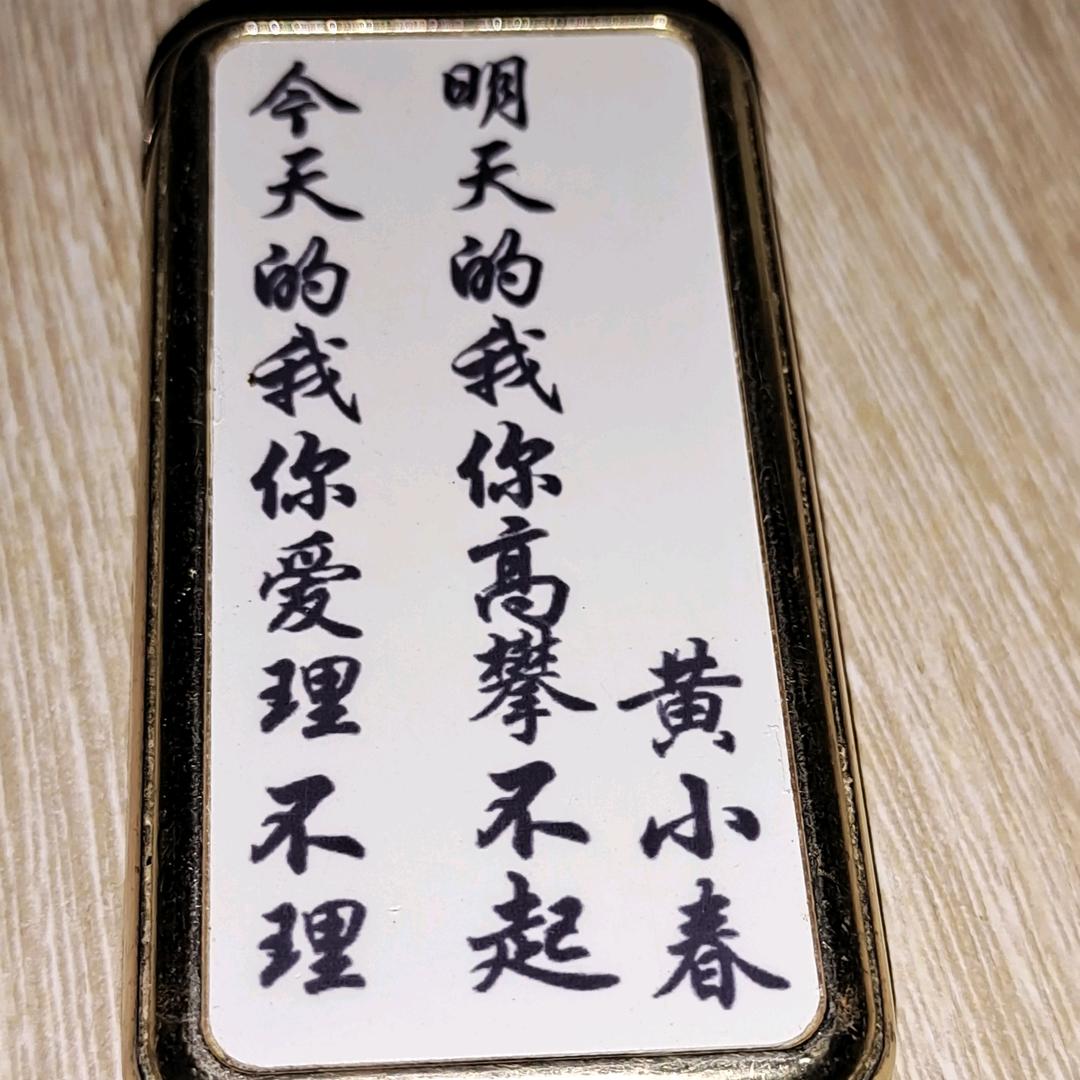 今天的我你爱理不理
明天的我你高攀不起
黄小春